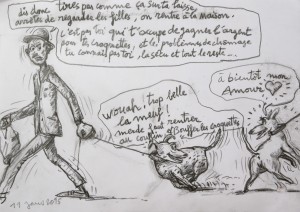 dis donc tires pas comme ça sur ta laisse,
arrêtes de regarder les filles, on rentre à la maison.
c'est pas toi qui t'occupe de gagner l'argent
pour tes croquettes, et les problèmes de chômage
tu connais pas toi, la sécu et tout le reste...
wouah, trop belle
la meuf !
merde faut rentrer
au
bouffer les croquettes
à bientôt mon
Amour
11 janv 2015